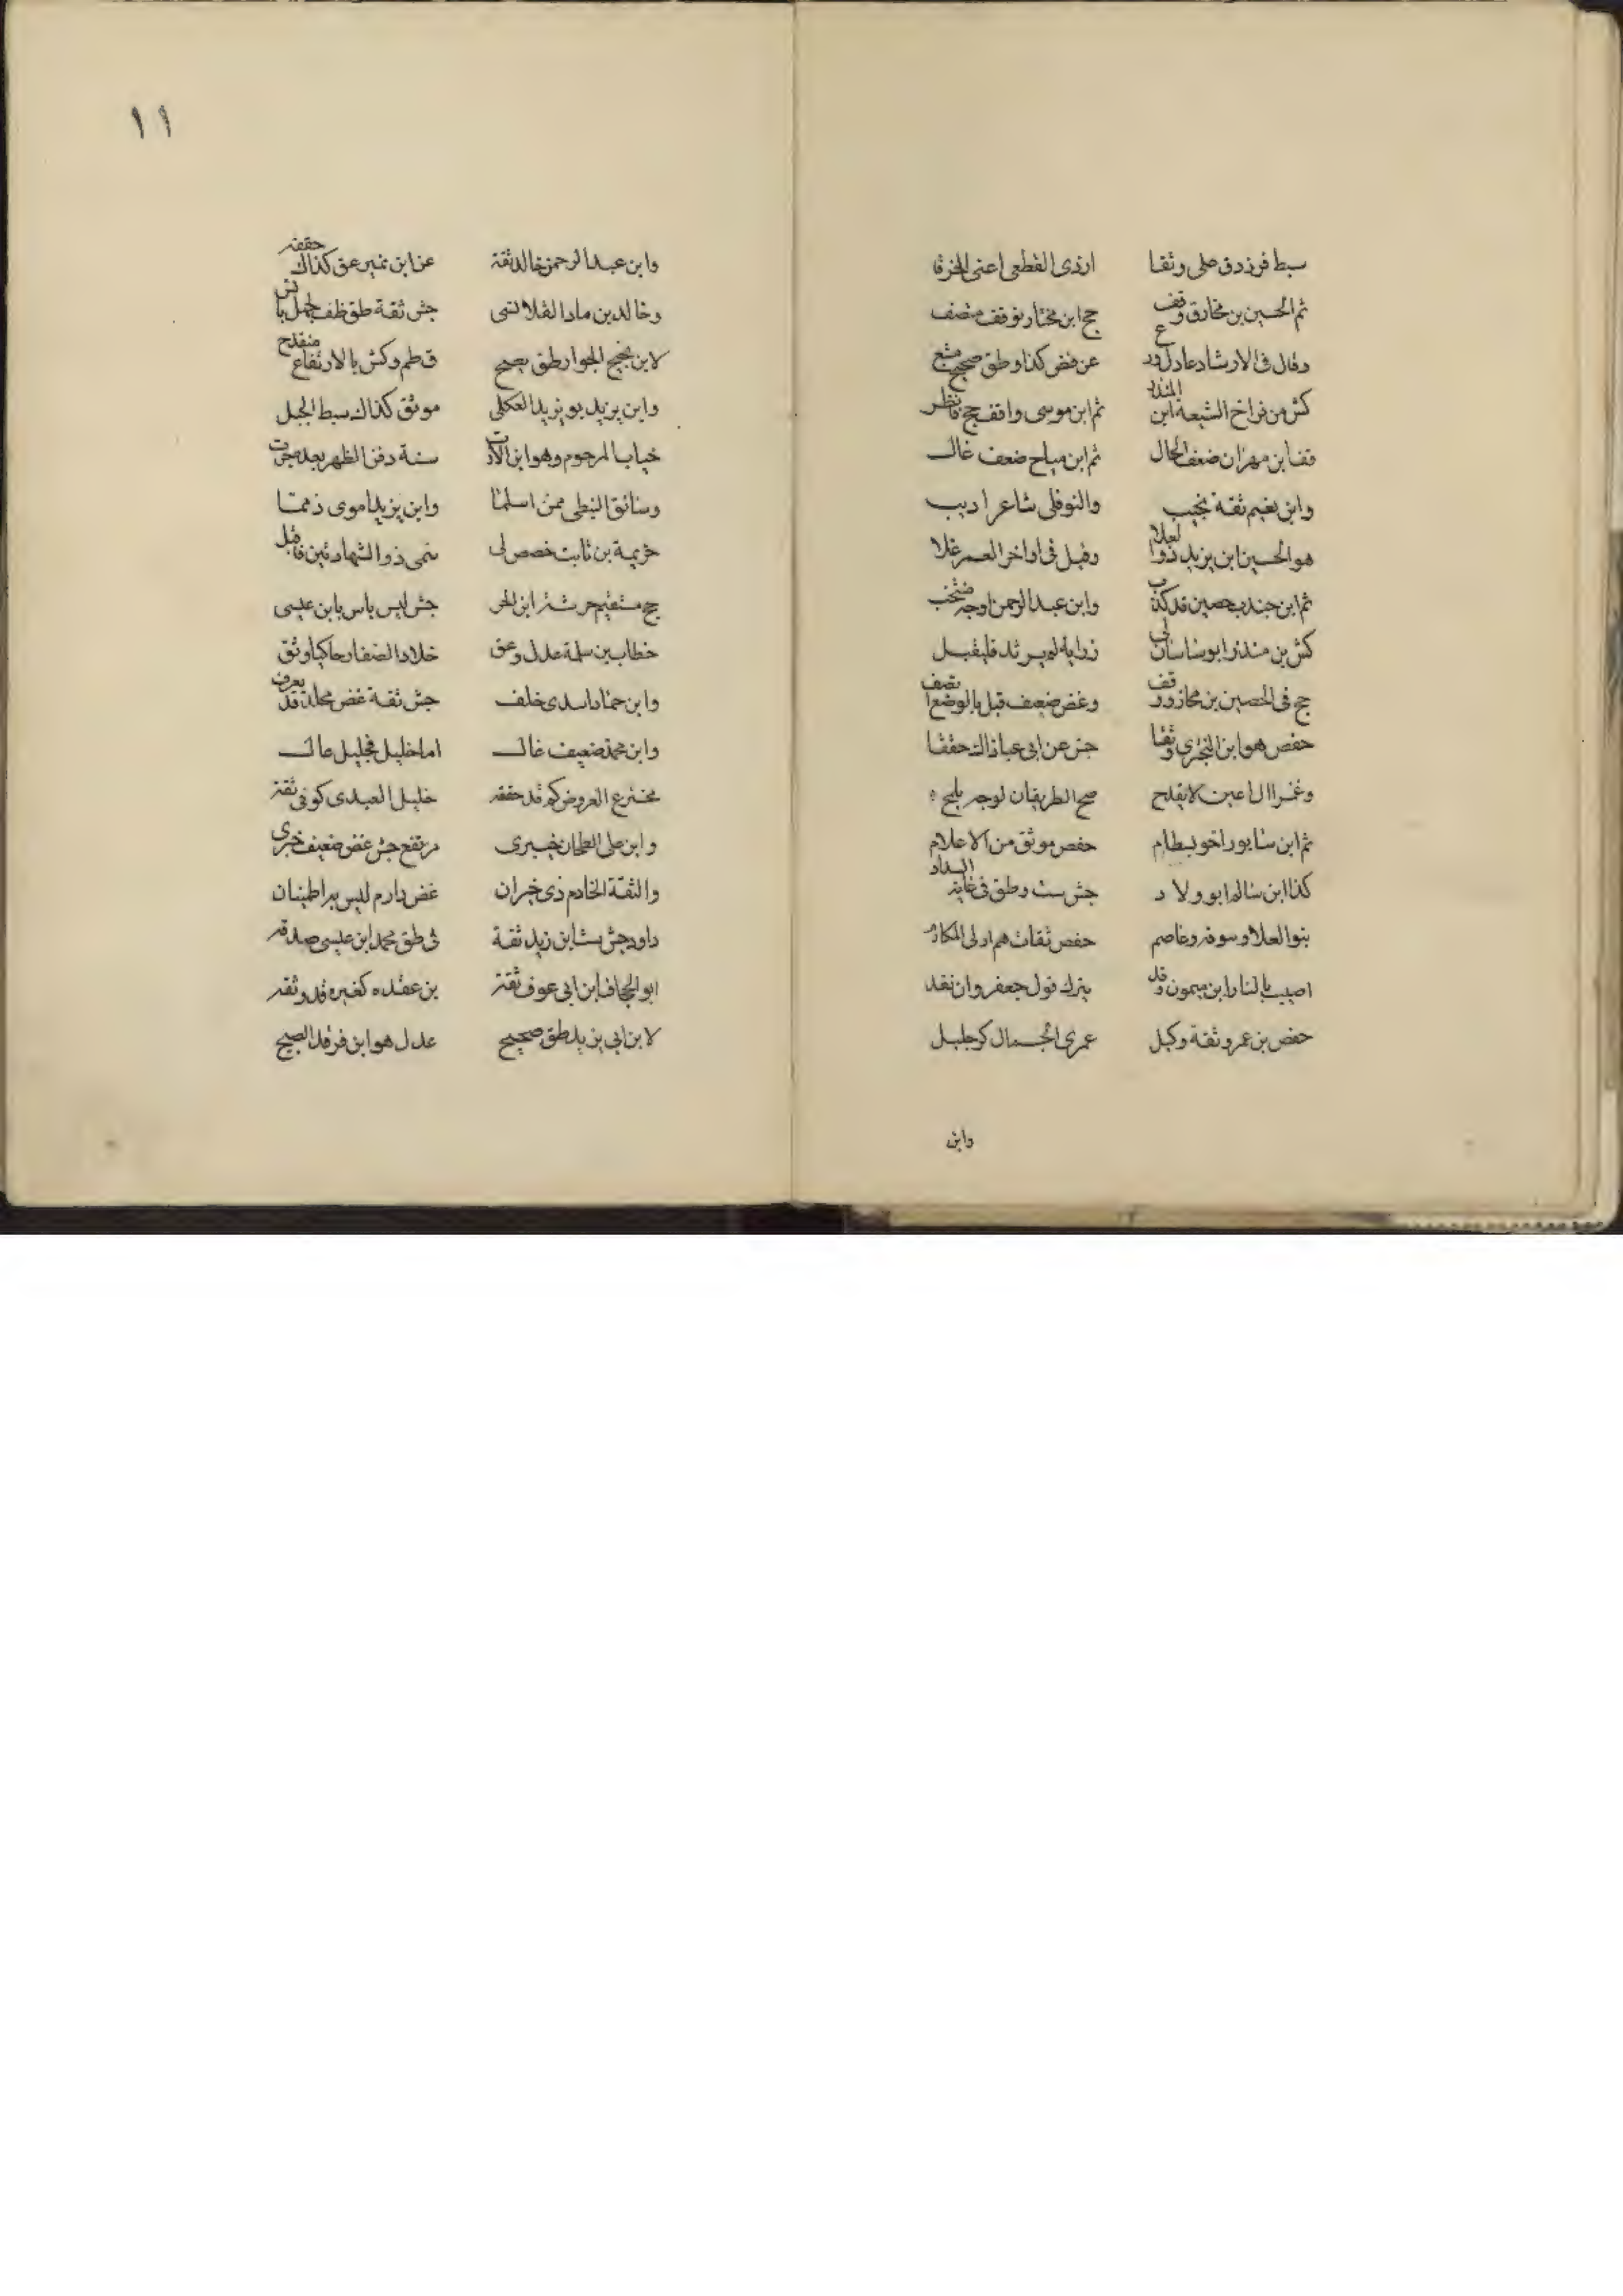 سبط فرزدق علی وثقا ازدی القطعی اعنی الخرقا
ثم الحسین بن مخارق وقف جج ابن مختار توقف مضف
وقال فی الارشاد عادل ورع عن فض کذا وطق صحیح متبع
کش من فراخ الشیعة ابن المنذر ثم ابن موسی واقف جج فانظر
قف ابن مهران ضعف الحال ثم ابن میاح ضعف غال
وابن نعیم ثقة نجیب والنوفلی شاعر ادیب
هو الحسین ابن یزید ذو العلا وقیل فی اواخر العمر غلا
ثم ابن جندب حصین قد کذب وابن عبد الرحمن اوجه منتخب
کش بن منذر ابو ساسان لم یرتد فلیقبل
جج فی الحصین بن مخارق وقف وغض ضعیف قیل بالوضع اتصف
حفص هو ابن البختری وثقا جش عن ابی عباذاک حققا
وغمز ال اعین لا یقدح صح الطریقان لوجه یلمح
ثم ابن سابور اخو بسطام حفص موثق من الاعلام
کذا ابن سالم ابو ولاد جش ست وطق فی غایة السداد
بنو العلا وسوقه وعاصم حفص ثقات هم اولی المکارم
اصیب بالنار ابن میمون وقد بترک قول جعفر وان نقد
حفص بن عمرو ثقة وکیل عمری الجمال کر جلیل
وابن
١١
وابن عبد الرحمن خالد ثقة عن ابن نمیر عق کذاک حققه
وخالد بن ماد القلانسی جش ثقة طق ظف لجمل
لابن نجیح الجوار طق یصح ق طم وکش بالارتفاع منقدح
وابن یزید بو یزید العکلی موثق کذاک سبط الجبل
خباب المرحوم وهو ابن الارت سنة دفن الظهر بعد
النبطی ممن اسلما وابن یزید اموی ذمما
خزیمة بن ثابت خصص لی سمی ذو الشهادتین فاقبل
جج مستقیم ابن الحر جش لیس باس بابن عیسی
خطاب بن سلمة عدل وعق خلاد الصفار حاکیا وثق
وابن حماد اسدی خلف جش ثقة غض مخلد قد یعرف
وابن محمد ضعیف غال اما خلیل فجلیل عال
مخترع العروض کم قد حققه خلیل العبدی کوفی ثقة
وابن علی الطحان خیبری مرتفع جش غض ضعیف خبری
والثقة الخادم ذی خیران غض دارم لیس به اطمینان
داود جش ست ابن زید ثقة فی طق محمد ابن عیسی صدقه
ابو الجحاف ابن ابی عوف ثقة بن عقده کغیره قد وثقه
لابن ابی یزید طق صحیح عدل هو ابن فرقد الصبیح